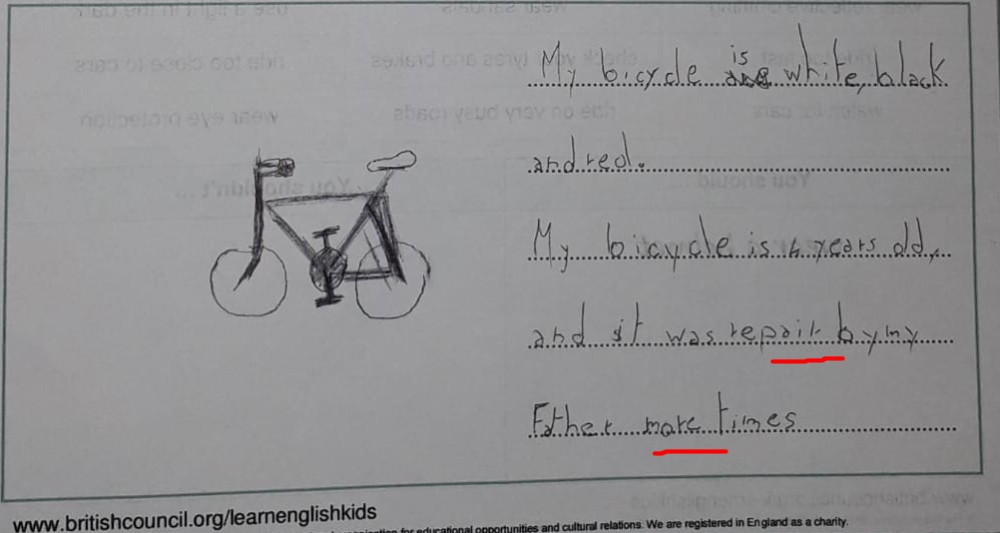 My bicycle is are white, black
and red.
My bicycle is 4 years old,
and it was repair by my
Father more times
www.britishcouncil.org/learnenglishkids
for educational opportunities and cultural relations. We are registered in England as a charity.